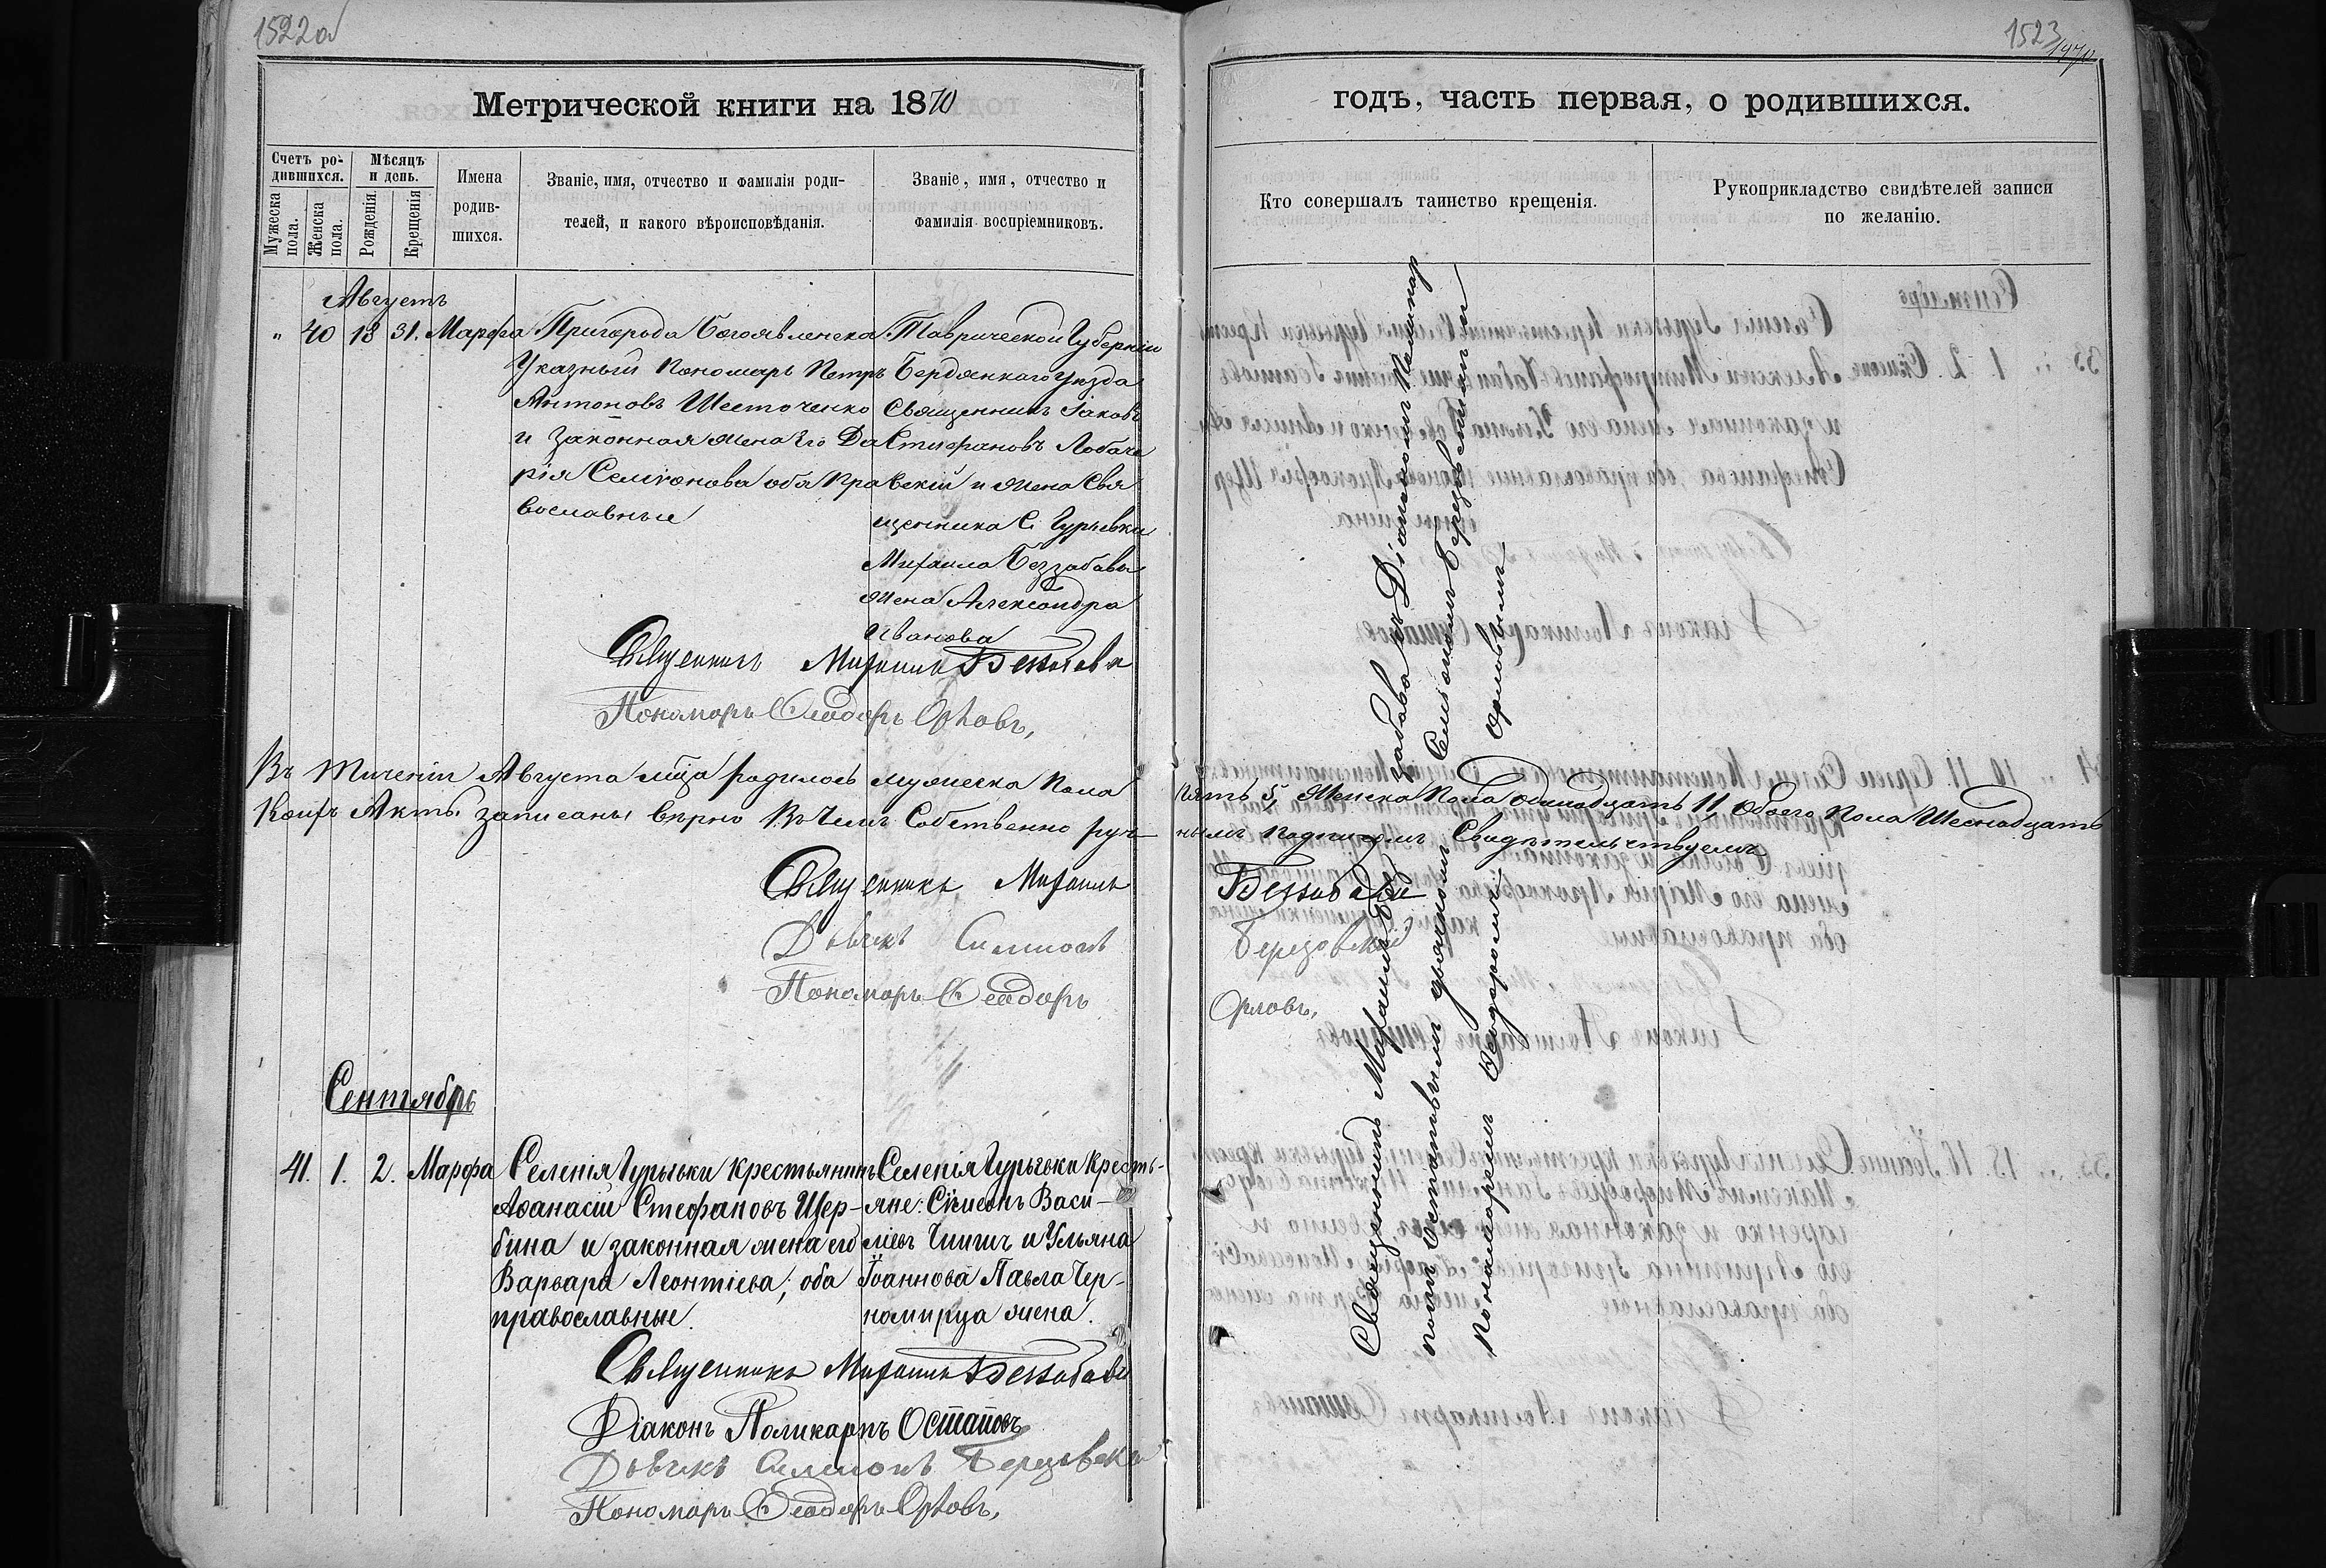 1522об
1523
1470
Метрической книги на 1870
годъ, часть первая, о родившихся.
Счетъ родившихся.
Мужеска пола.
Женска пола.
Мѣсяцъ и день.
Рожденія.
Крещенія
Имена родившихся.
Званіе, имя, отчество и фамилія родителей, и какого вѣроисповѣданія.
Званіе, имя, отчество и фамилія воспріемниковъ.
Кто совершалъ таинство крещенія.
Рукоприкладство свидѣтелей записи по желанію.
Августъ
" 40 18 31. Марфа
Пригорода Богоявленска
Указный Пономарь Петръ
Антоновъ Шесточенко
и законная жена Его Да
рія Семіонова оба Пра
вославные
Таврической Губерніи
Бердянкаго Уезда
Священникъ Іаковъ
Стифановъ Лобаче
вскій и жена Свя
щенника С. Гурьевки
Михаила Беззабавы
жена Александра
Иванова
Священникъ Михаилъ Беззабава
Пономарь Ѳеодоръ Орловъ,
Въ Теченіи Августа мца родилось мужеска Пола
Пять 5, Женска Пола одинадцать 11, Обоего Пола Шеснадцать
Коихъ Акты записаны верно Въ Чемъ Собственно руч
нымъ подписомъ Свидетельствуемъ
Священникъ Михаилъ
Беззабава
Дьячекъ Симионъ
Березовскій
Пономарь Ѳеодоръ
Орловъ,
Сентябрь
41. 1. 2. Марфа
Селенія Гурьевки крестьянинъ
Аѳанасій Стефановъ Щер-
бина и законная жена его
Варвара Леонтіева; оба
православные.
Селенія Гурьевки Кресть-
яне: Сѵмеонъ Васи-
ліевъ Чигичъ и Ульяна
Іоаннова Павла Чер-
номирца жена.
Священникъ Михаилъ Беззабава
Діаконъ Поликарпъ Остаповъ
Дьячекъ Симионъ Березовскій
Пономарь Ѳеодоръ Орловъ,
Священникъ Михаилъ Беззабава съ Діакономъ Поликар
помъ Остаповымъ дьячкомъ Симіономъ Березовскимъ и
Пономаремъ Ѳеодоромъ Орловымъ